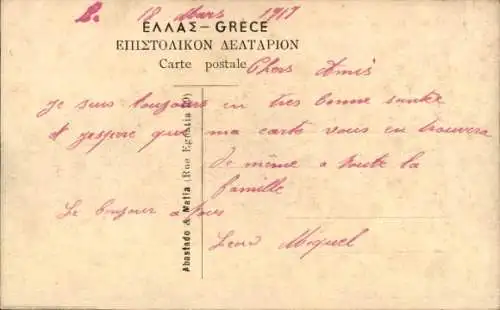 18 Mars 1917
ΕΛΛΑΣ – GRECE
ΕΠΙΣΤΟΛΙΚΟΝ ΔΕΛΤΑΡΙΟΝ
Carte postale
Chers Amis
Je suis toujours en tres bonne santé
et j'espère que ma carte vous en trouvera
de même a toute la
famille
Le bonjour a tous
Leon Miquel
Abastado & Matia (Rue Egnatia 10)